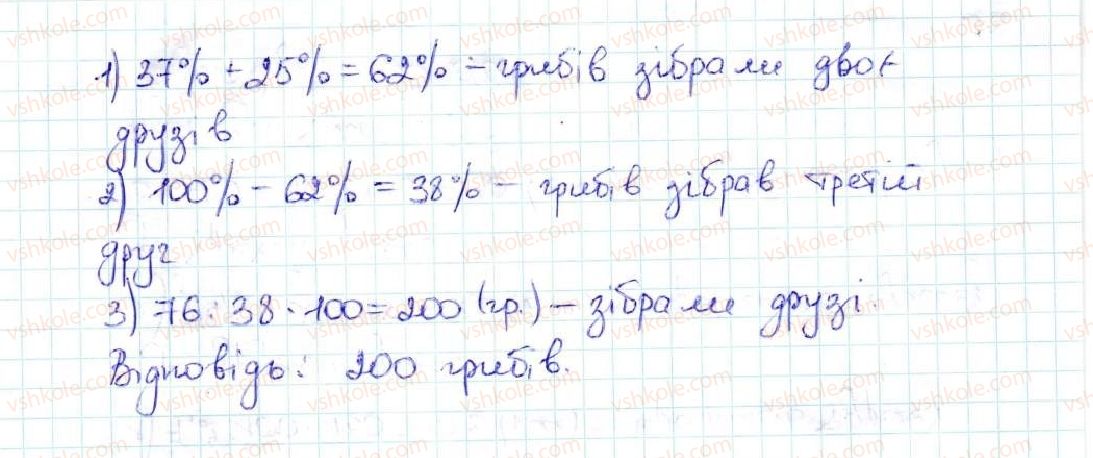 1) 37% + 25% = 62% - грибів зібрали двоє
друзів
2) 100% - 62% = 38% - грибів зібрав третій
друг
3) 76 : 38 · 100 = 200 (гр.) - зібрали друзі.
Відповідь: 200 грибів.